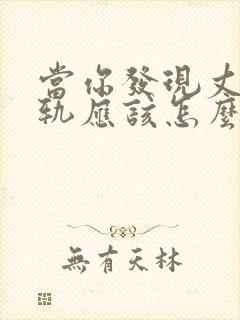 當你發現丈
軌應該怎麼
無有天林